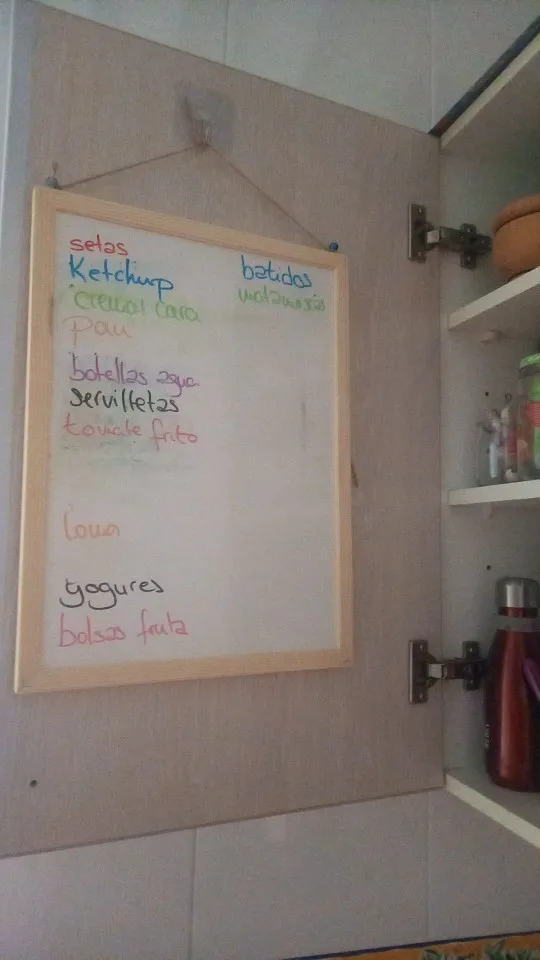 setas
Ketchup
crema cara
pan
botellas agua
servilletas
tomate frito
Lomo
yogures
bolsas fruta
batidos